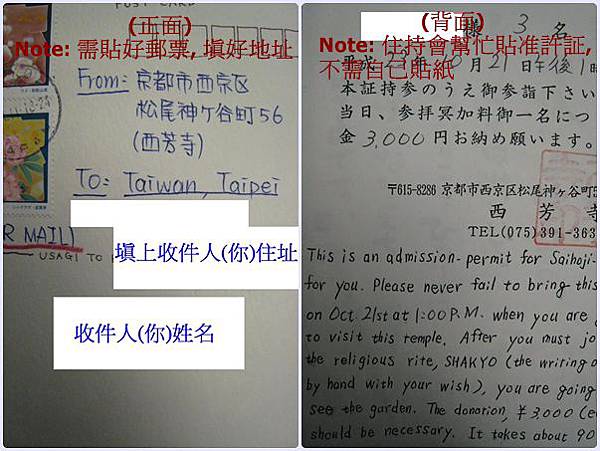 POST CARD
(正面)
Note: 需貼好郵票, 填好地址
From: 京都市西京区
松尾神ヶ谷町56
(西芳寺)
To: Taiwan, Taipei
R MAIL)
USAGI TO
填上收件人(你)住址
收件人(你)姓名
(背面)
様 3 名
Note: 住持會幫忙貼准許証,
不需自己貼紙
平成 月21日午後1
本証持参のうえ御参詣下さい
当日、参拝冥加料御一名につ
金 3,000 円お納め願います。
〒615-8286 京都市西京区松尾神ヶ谷町5
西 芳 寺
TEL(075)391-363
This is an admission-permit for Saihoji-
for you. Please never fail to bring this
on Oct. 21st at 1:00 P.M. when you are
to visit this temple. After you must jo
the religious rite, SHAKYO (the writing o
by hand with your wish), you are going
see the garden. The donation, ¥3,000 (e
should be necessary. It takes about 90